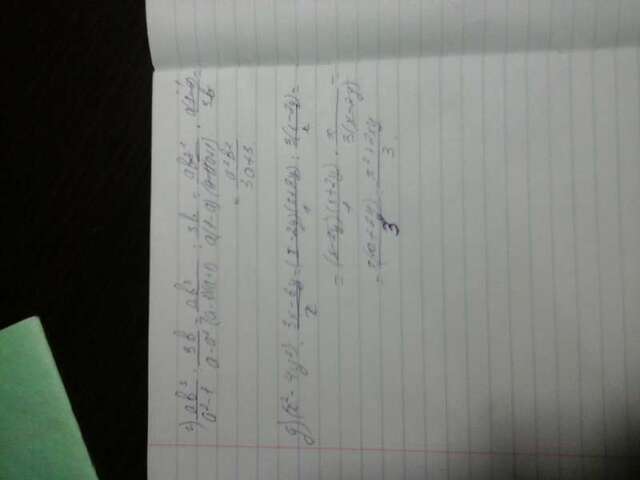 г) ab³/a²-1 : 3b/a-a² = ab³/(a-1)(a+1) : 3b/a(1-a) =
= a²b²/3a+3
g) (x² - 4y²) : 3x-6y/x = (x-2y)(x+2y)/1 : 3(x-2y)/x =
= (x-2y)(x+2y)/1 · x/3(x-2y) =
= x(x+2y)/3 = x²+2xy/3